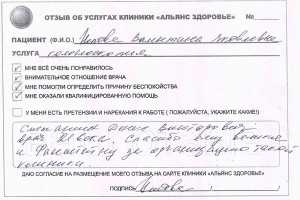 ОТЗЫВ ОБ УСЛУГАХ КЛИНИКИ «АЛЬЯНС ЗДОРОВЬЕ» №
ПАЦИЕНТ (Ф.И.О.) Валентина Яковлевна
УСЛУГА колоноскопия
МНЕ ВСЁ ОЧЕНЬ ПОНРАВИЛОСЬ
ВНИМАТЕЛЬНОЕ ОТНОШЕНИЕ ВРАЧА
МНЕ ПОМОГЛИ ОПРЕДЕЛИТЬ ПРИЧИНУ БЕСПОКОЙСТВА
МНЕ ОКАЗАЛИ КВАЛИФИЦИРОВАННУЮ ПОМОЩЬ
У МЕНЯ ЕСТЬ ПРЕТЕНЗИИ И НАРЕКАНИЯ К РАБОТЕ ( ПОЖАЛУЙСТА, УКАЖИТЕ КАКИЕ!)
Викторовна
врач Спасибо
и за организацию такой
клиники.
ДАЮ СОГЛАСИЕ НА РАЗМЕЩЕНИЕ МОЕГО ОТЗЫВА НА САЙТЕ КЛИНИКИ «АЛЬЯНС ЗДОРОВЬЕ»
ПОДПИСЬ